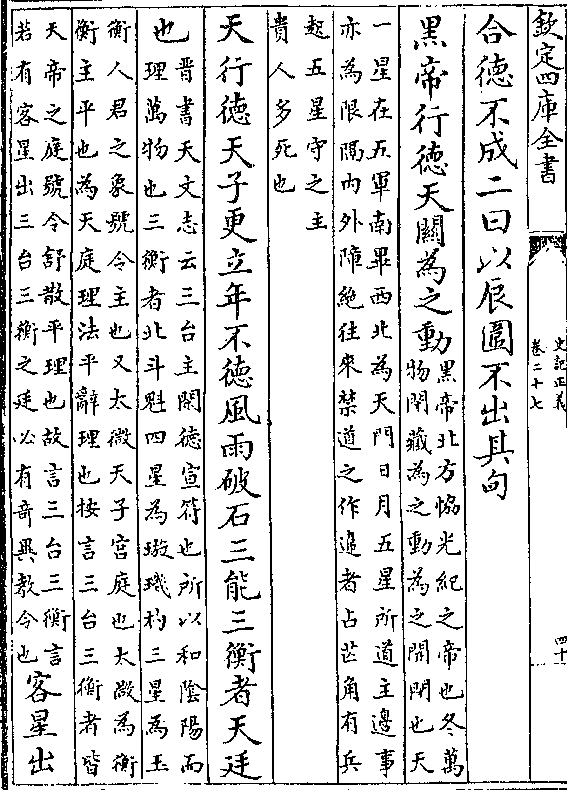 欽定四庫全書
史記正義
卷二十七
四十
合德不成二曰以辰圍不出其旬
黑帝行德天關為之動
黑帝北方恊光紀之帝也冬萬
物閉藏為之動為之開閉也天
一星在五軍南畢西北為天門日月五星所道主邊事
亦為限隔内外障絶往來禁道之作違者占芒角有兵
起五星守之主
貴人多死也
天行德天子更立年不德風雨破石三能三衡者天廷
也
晋書天文志云三台主開德宣符也所以和陰陽而
理萬物也三衡者北斗魁四星為璇璣杓三星為玉
衡人君之象號令主也又太微天子宫庭也太微為衡
衡主平也為天庭理法平辭理也按言三台三衡者皆
天帝之庭號令舒散平理也故言三台三衡言
若有客星出三台三衡之廷必有竒異教令也
客星出